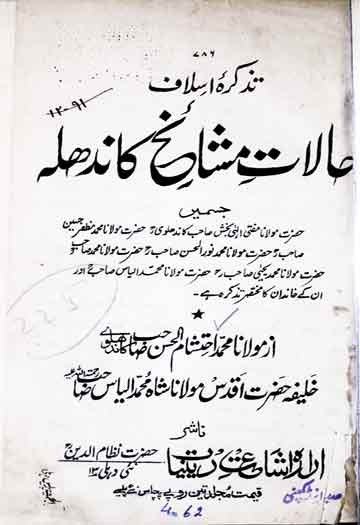 ۷۸۶
تذکرۂ اسلاف
۱۲۰۹۱
حالاتِ مشائخ کاندھلہ
جسمیں
حضرت مولانا مفتی الٰہی بخش صاحب کاندھلوی رح حضرت مولانا محمد مظفر حسین
صاحب رح حضرت مولانا محمد نور الحسن صاحب رح حضرت مولانا محمد صاحب رح
حضرت مولانا محمد یحییٰ صاحب رح حضرت مولانا محمد الیاس صاحب رح اور
ان کے خاندان کا مختصر تذکرہ ہے۔
225
از مولانا محمد احتشام الحسن صاحب کاندھلوی
خلیفہ حضرت اقدس مولانا شاہ محمد الیاس صاحب رحمۃ اللہ علیہ
ناشر
ادارہ اشاعت دینیات حضرت نظام الدین رح نئی دہلی ۱۳
قیمت مجلد تین روپے پچاس پیسے
4.62